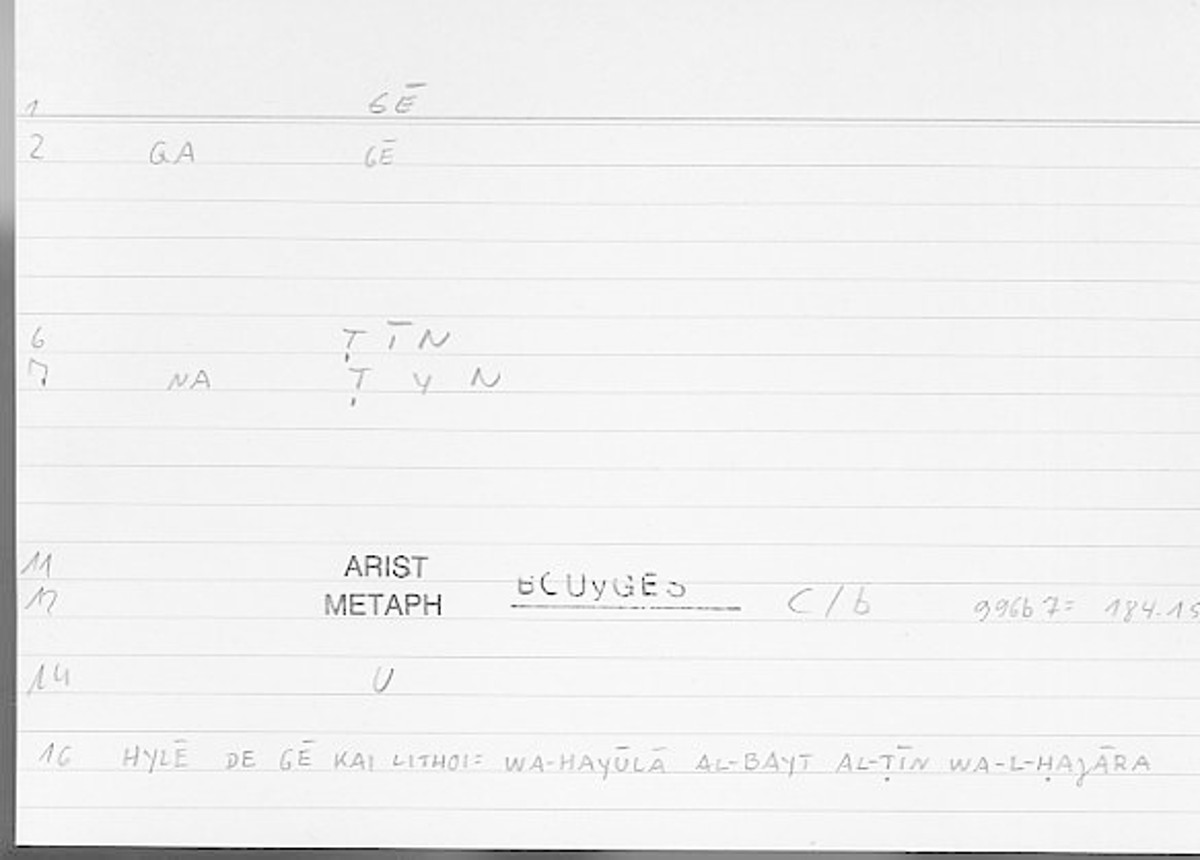 1 GĒ
2 GA GĒ
6 ṬĪN
7 NA Ṭ Y N
11 ARIST
12 METAPH BOUYGES C/b 996b7= 184.15
14 U
16 HYLĒ DE GĒ KAI LITHOI= WA-HAYŪLĀ AL-BAYT AL-ṬĪN WA-L-ḤAJĀRA